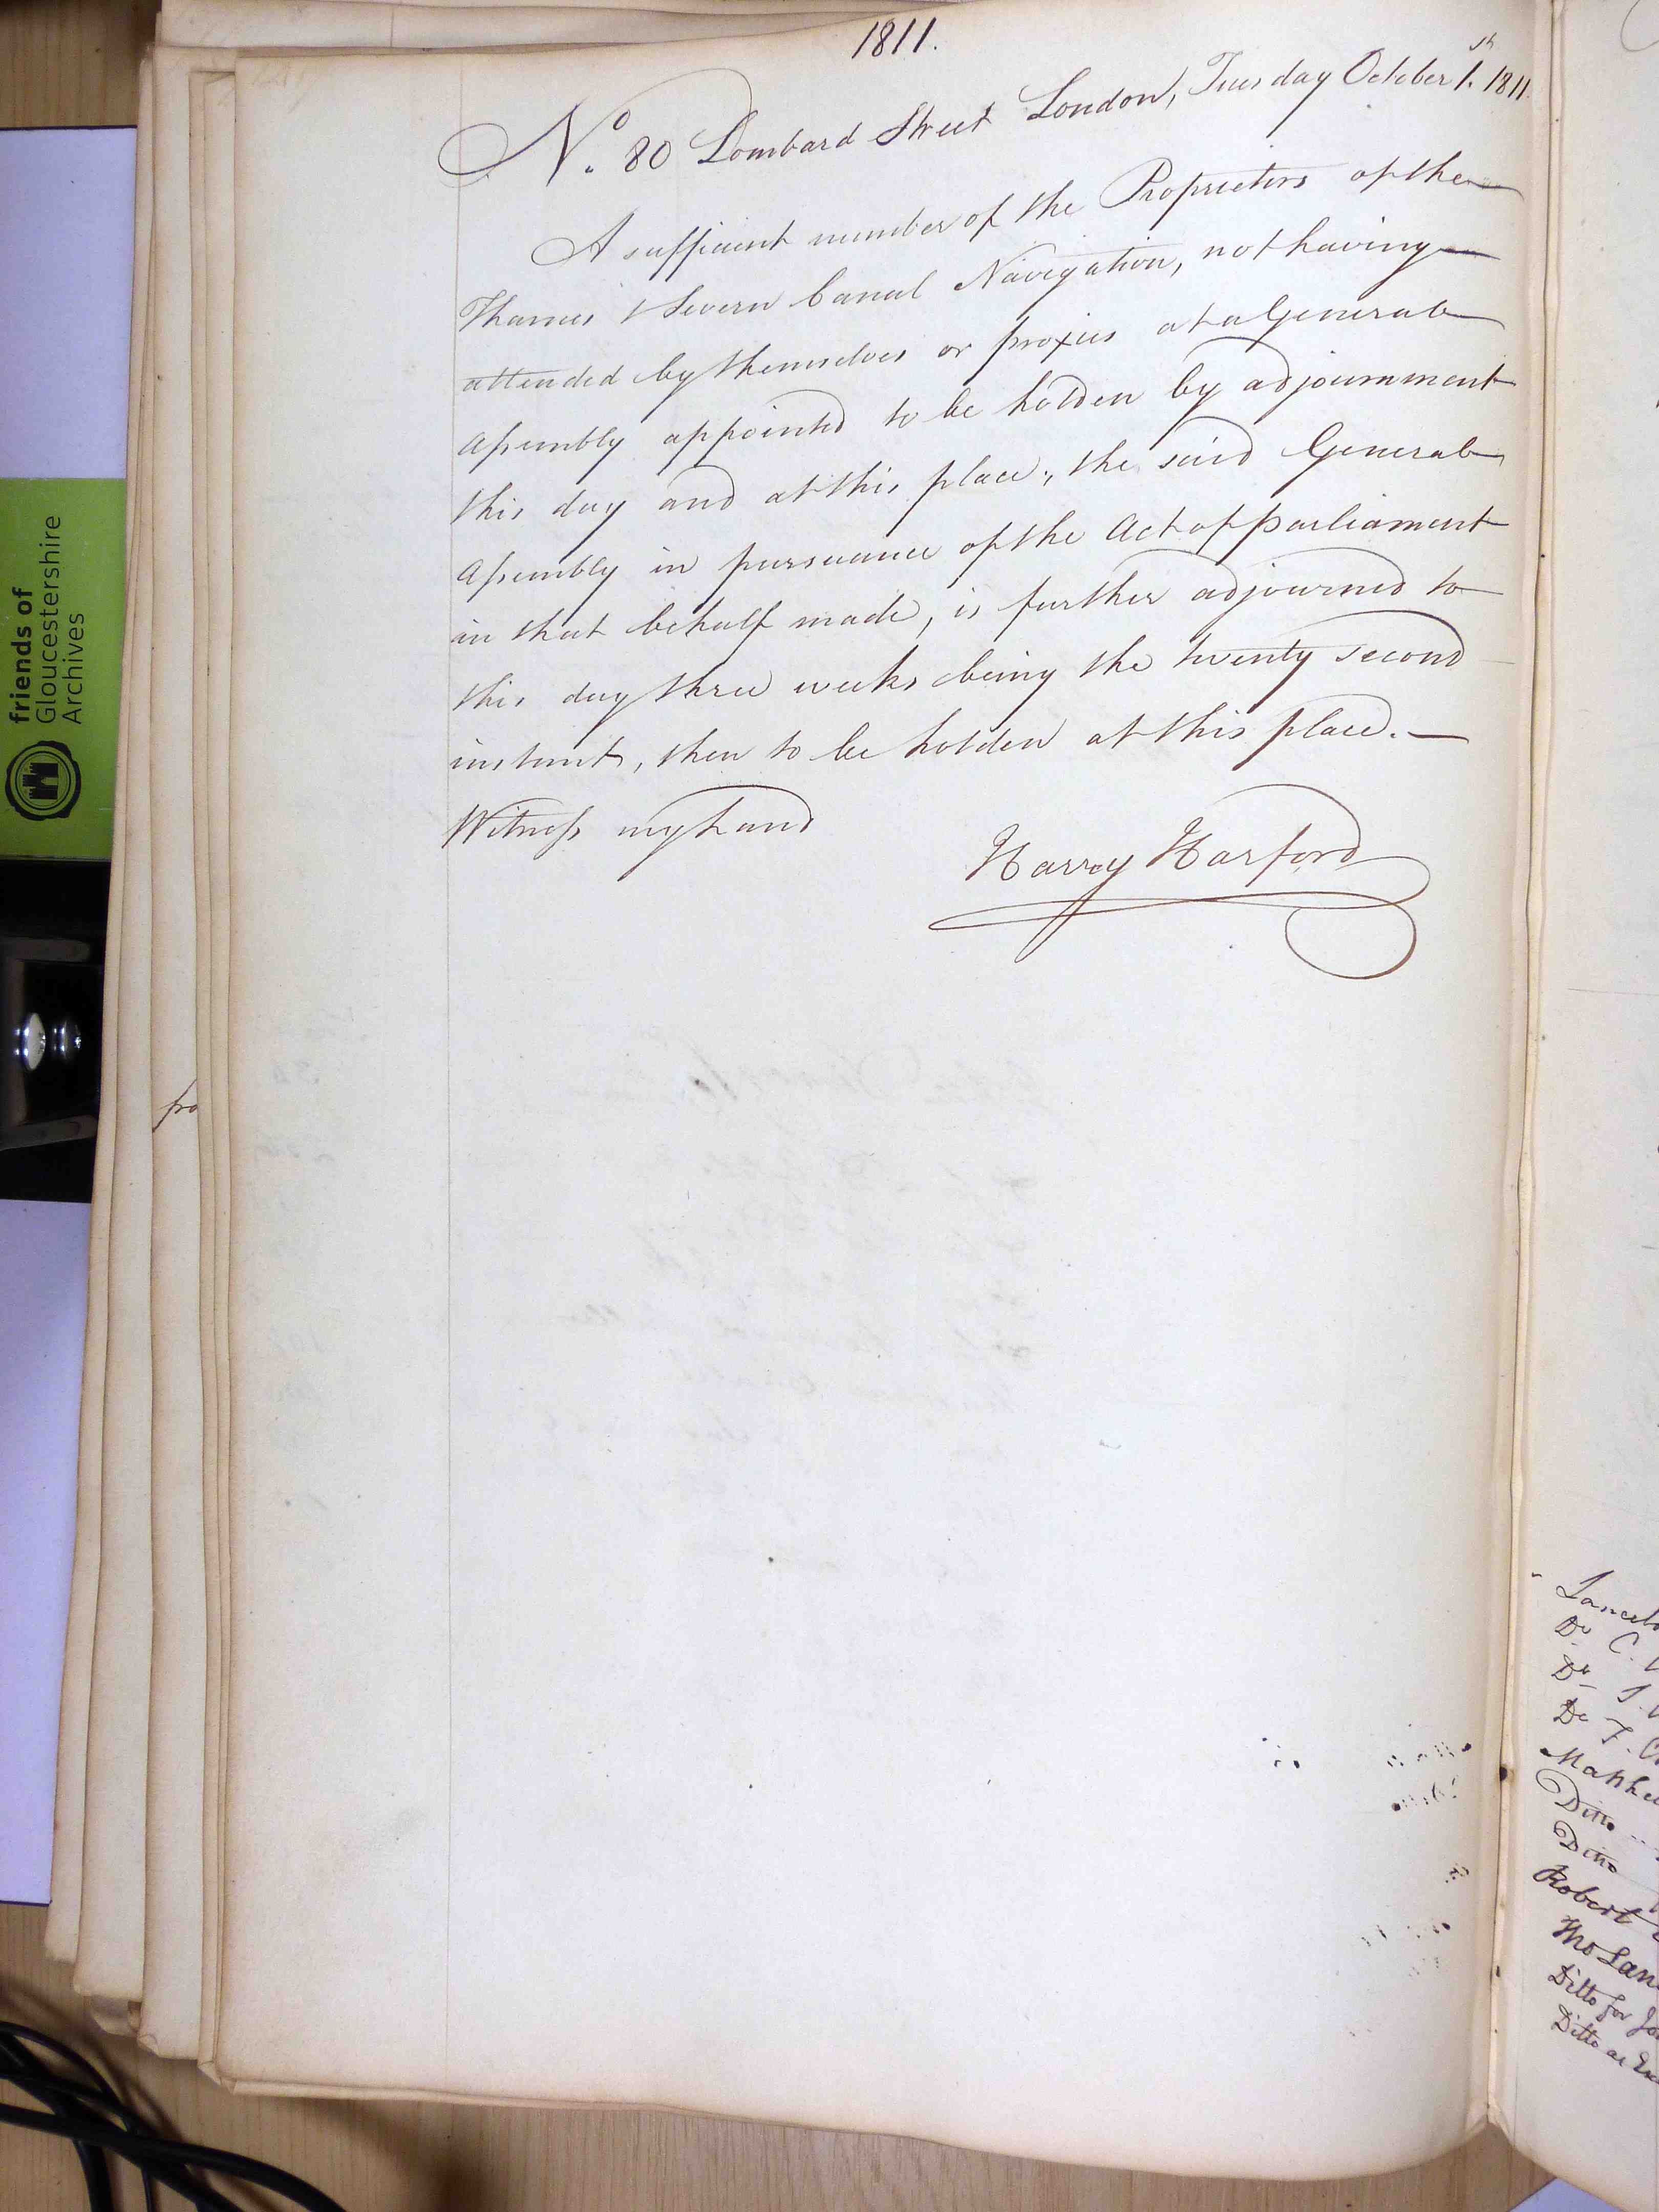 1811.
No. 80 Lombard Street London, Tuesday October 1st. 1811.
A sufficient number of the Proprietors of the
Thames & Severn Canal Navigation, not having
attended by themselves or proxies at a General
Assembly appointed to be holden by adjournment
this day and at this place; the said General
Assembly in pursuance of the Act of parliament
in that behalf made, is further adjourned to
this day three weeks being the twenty second
instant, then to be holden at this place. —
Witness my hand
Harry Harford
friends of
Gloucestershire
Archives
pro
Do C.
Do
Do T.
Ditto
Ditto
Robert
Tho
Ditto for
Ditto as